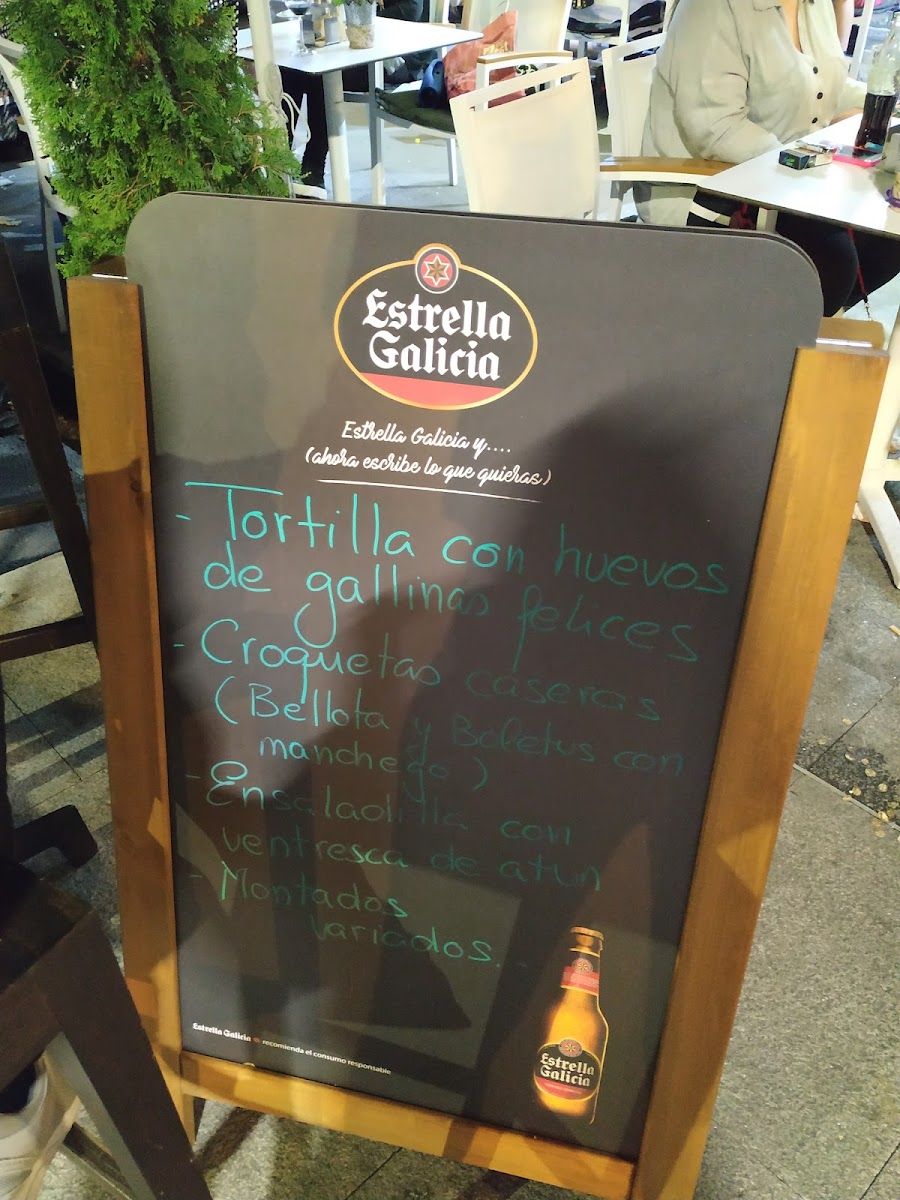 Estrella
Galicia
Estrella Galicia y....
(ahora escribe lo que quieras)
- Tortilla con huevos
de gallinas felices
- Croquetas caseras
(Bellota y Boletus con
manchego)
- Ensaladilla con
ventresca de atún
- Montados
variados...
Estrella Galicia recomienda el consumo responsable
Estrella
Galicia